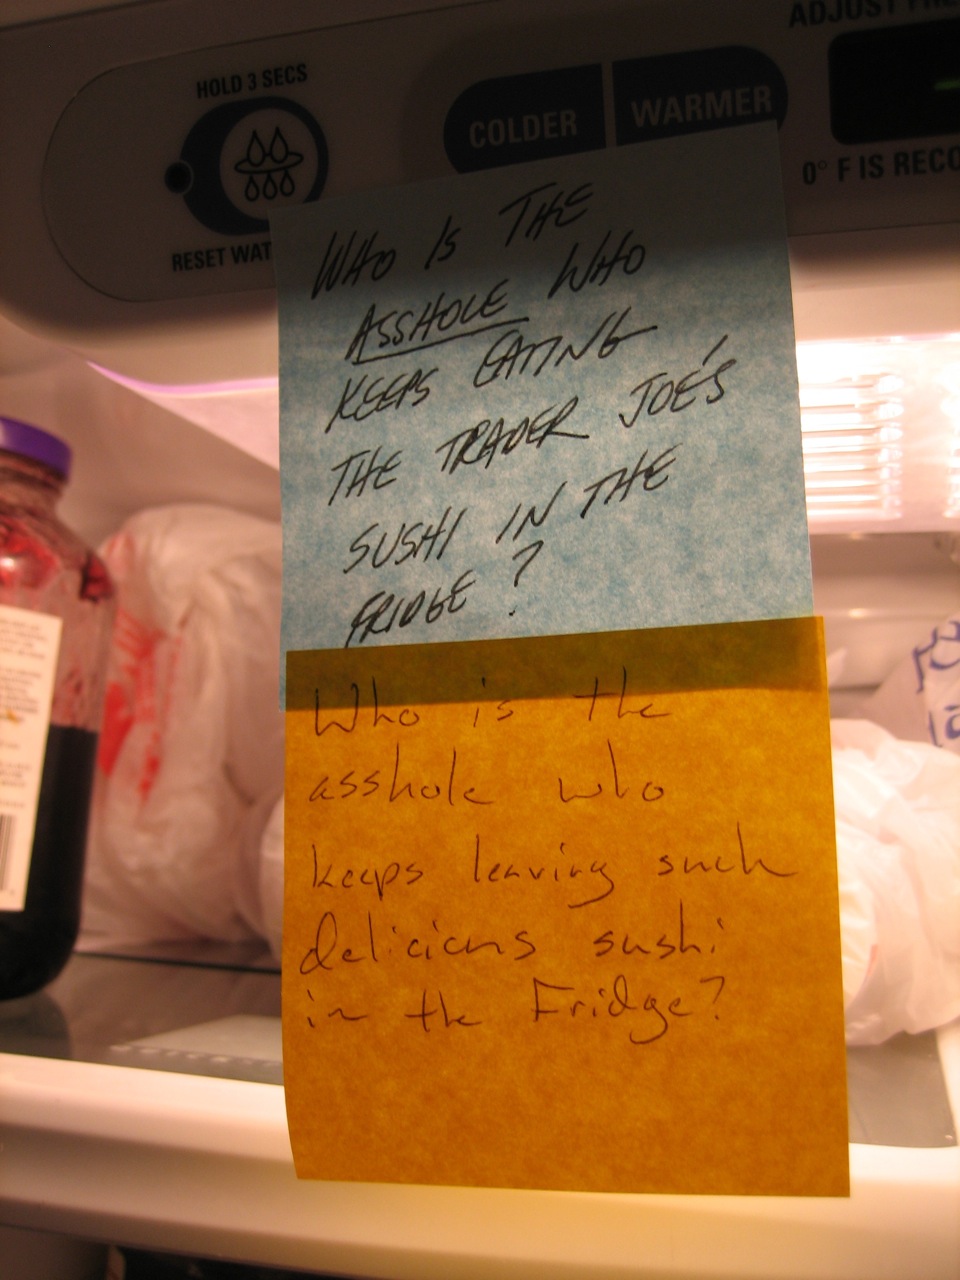 ADJUST
HOLD 3 SECS
COLDER
WARMER
0° F IS RECO
RESET WAT
WHO IS THE
ASSHOLE WHO
KEEPS EATING
THE TRADER JOE'S
SUSHI IN THE
FRIDGE?
Who is the
asshole who
keeps leaving such
delicious sushi
in the Fridge?